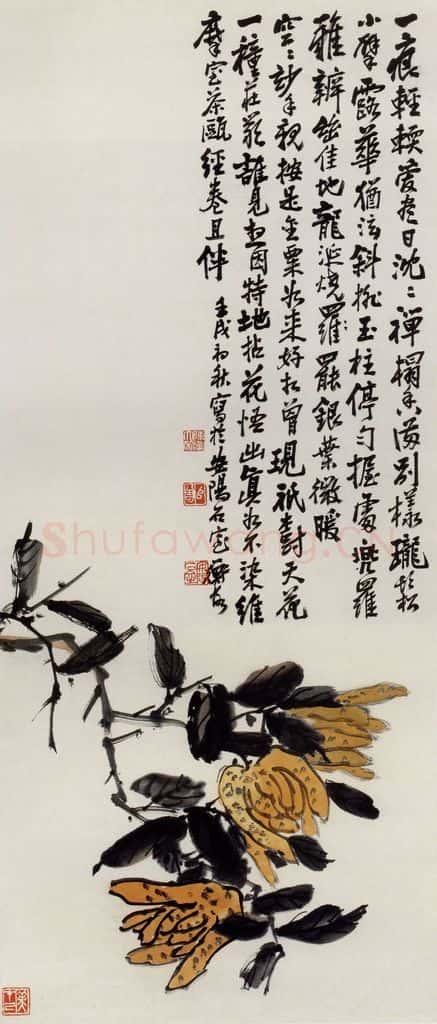 一痕輕輭日沈〻禪榻香濃別樣瓏鬆
小擘露華猶泫斜玉柱停勻握處兜羅
佳地龍涎燒羅罷銀葉微暖
空〻妙手視按是金粟如來好相曾現祇對天花
一種莊嚴誰見因特地拈花悟出真如染維
摩室茶甌經卷且伴
壬戌初秋寫於安陽石室
Shufawang.CN